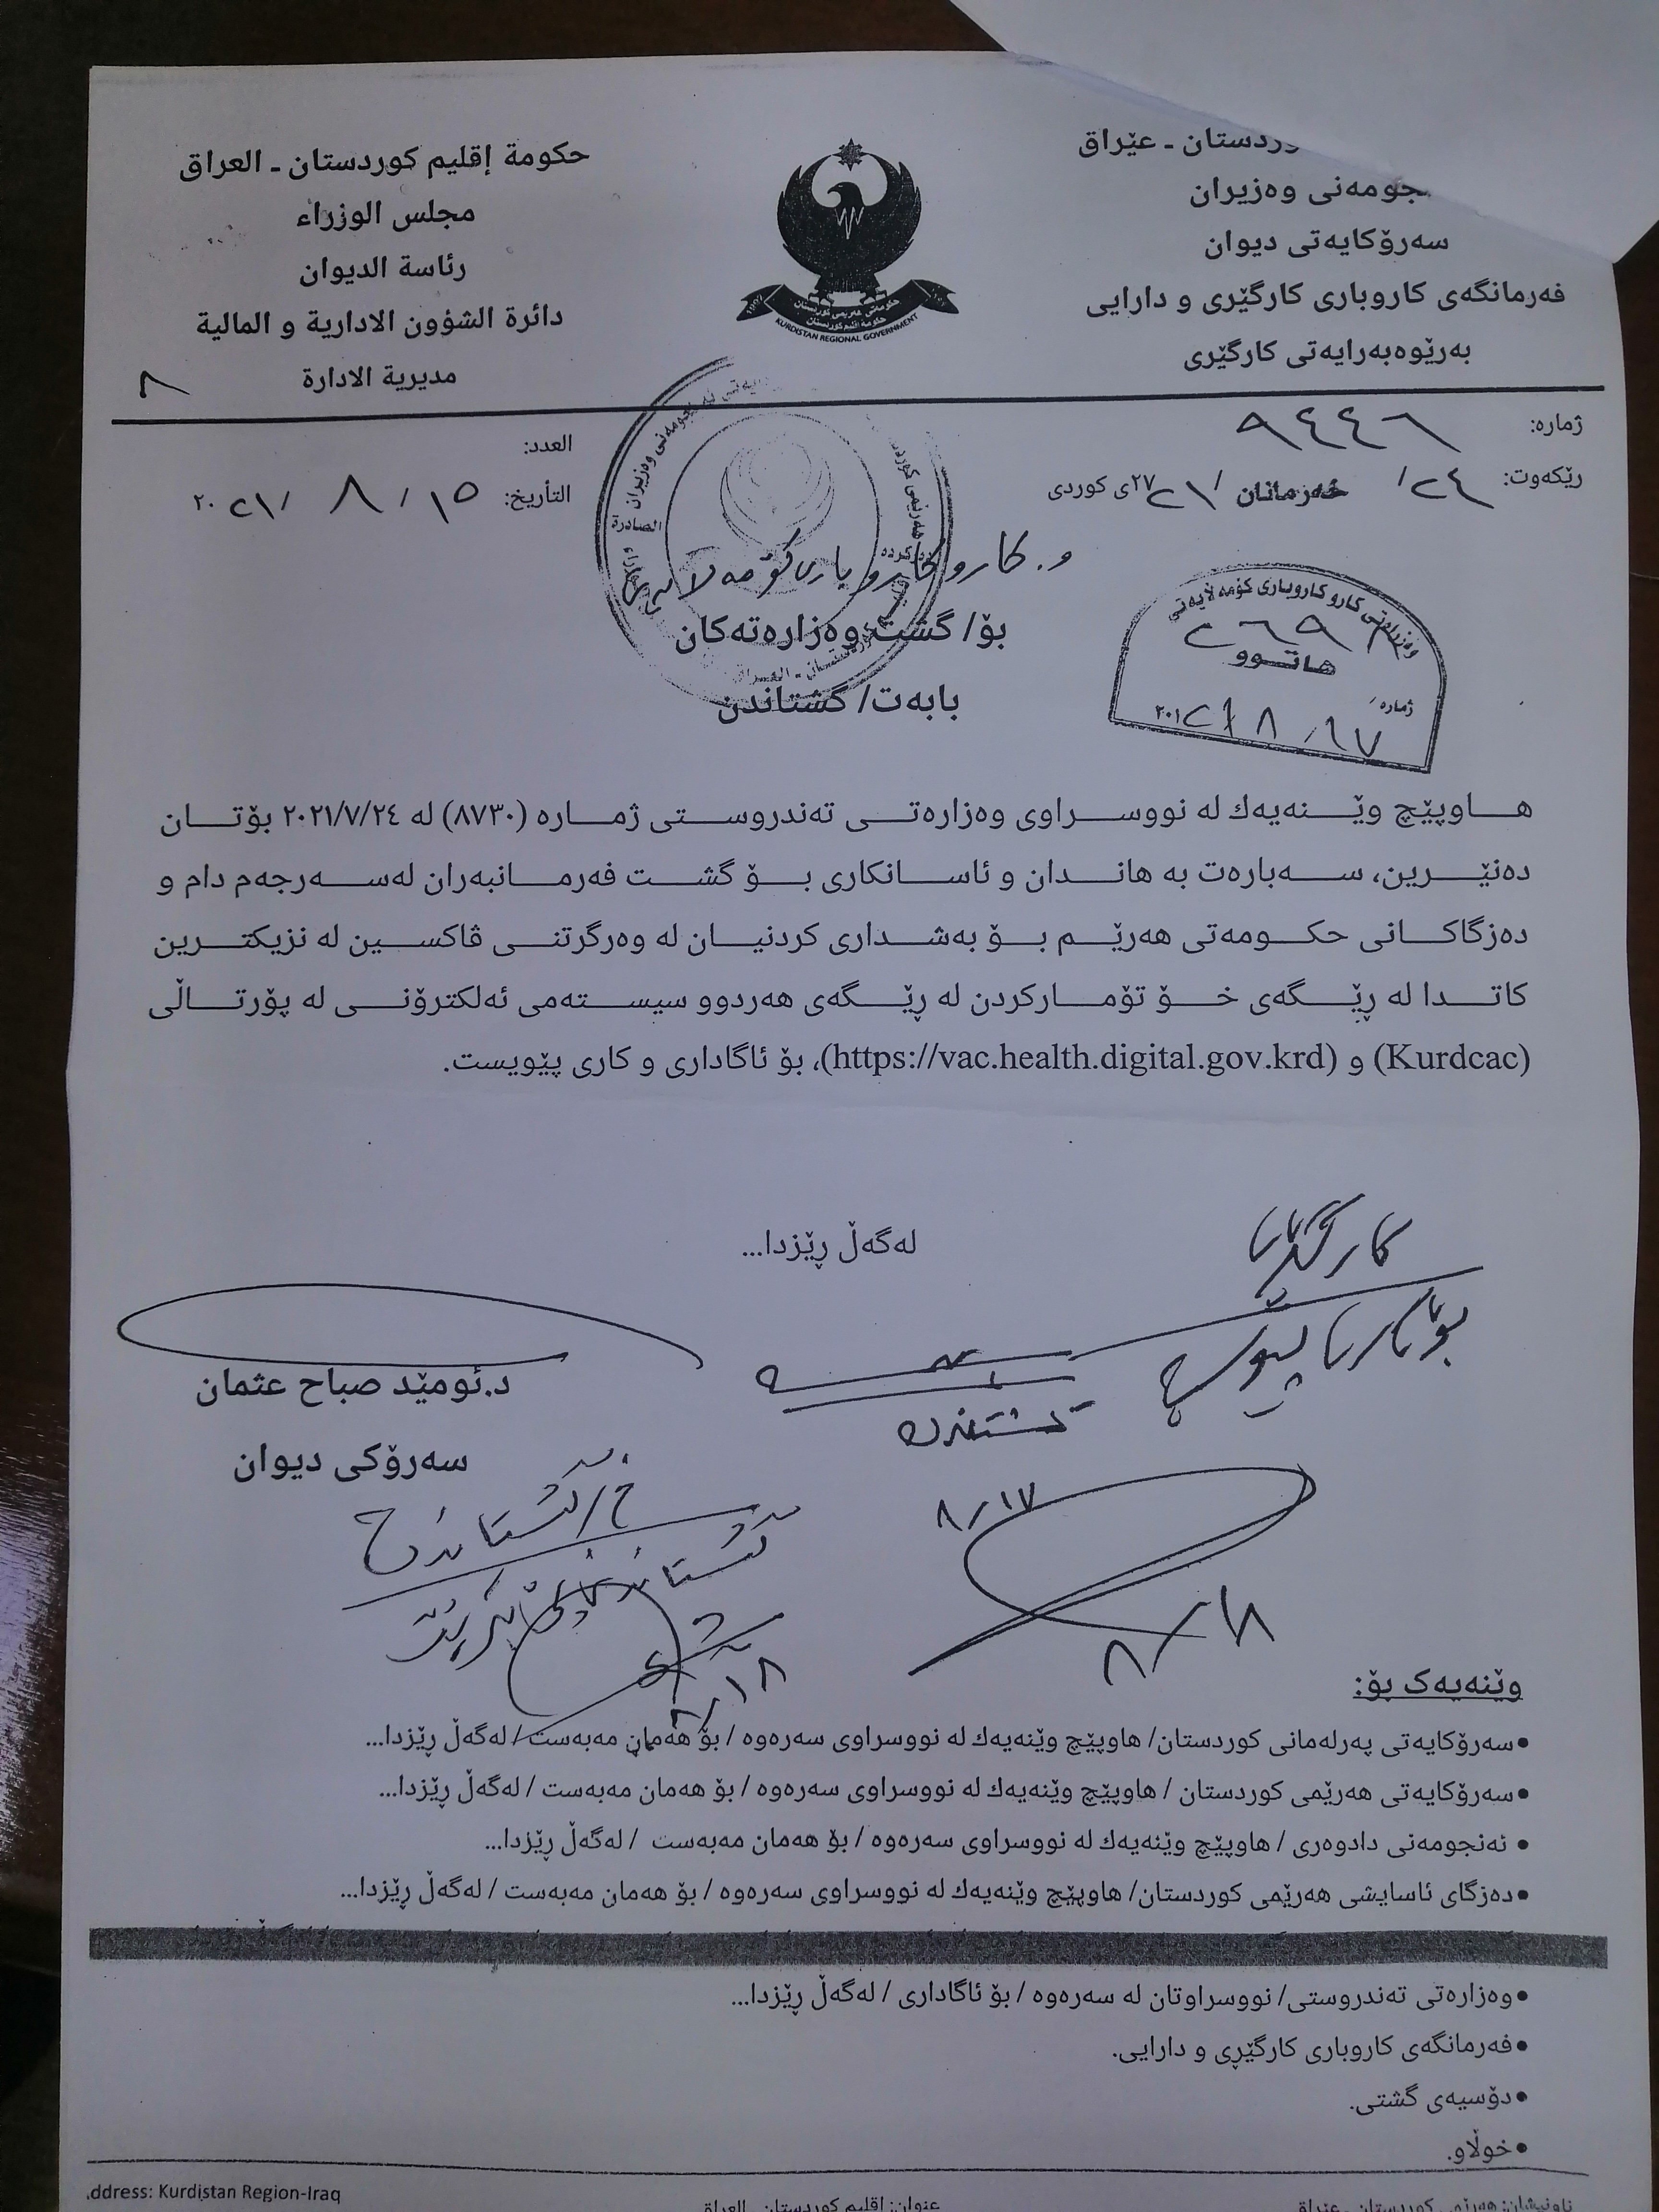 وردستان ـ عێراق
جومەنی وەزیران
سەرۆکایەتی دیوان
فەرمانگەی کاروباری کارگێری و دارایی
بەرێوەبەرایەتی کارگێری
حكومة إقليم كوردستان ـ العراق
مجلس الوزراء
رئاسة الديوان
دائرة الشؤون الادارية و المالية
مديرية الادارة
٨
KURDISTAN REGIONAL GOVERNMENT
ژمارە: ٩٤٤٦
رێکەوت: ٢٤/ خەرمانان /٢٧٢١ی کوردی
العدد:
التأريخ: ١٥/ ٨ /٢٠٢١
و. کارو کاروباری کۆمەلایەتی
الصادرة
بۆ/ گشت وەزارەتەکان
بابەت/ گشتاندن
وەزارەتی کارو کاروباری کۆمەلایەتی
هاتوو
ژمارە
هاوپێچ وێنەیەك لە نووسراوی وەزارەتی تەندروستی ژمارە (٨٧٣٠) لە ٢٠٢١/٧/٢٤ بۆتان
دەنێرین، سەبارەت بە هاندان و ئاسانکاری بۆ گشت فەرمانبەران لەسەرجەم دام و
دەزگاکانی حکومەتی هەرێم بۆ بەشداری کردنیان لە وەرگرتنی ڤاکسین لە نزیکترین
کاتدا لە ڕێگەی خۆ تۆمارکردن لە ڕێگەی هەردوو سیستەمی ئەلکترۆنی لە پۆرتاڵی
(Kurdcac) و (https://vac.health.digital.gov.krd)، بۆ ئاگاداری و کاری پێویست.
لەگەڵ ڕێزدا...
د.ئومێد صباح عثمان
سەرۆکی دیوان
٨/١٧
٨/١٨
وێنەیەک بۆ:
•سەرۆکایەتی پەرلەمانی کوردستان/ هاوپێچ وێنەیەك لە نووسراوی سەرەوە / بۆ هەمان مەبەست / لەگەڵ ڕێزدا...
•سەرۆکایەتی هەرێمی کوردستان / هاوپێچ وێنەیەك لە نووسراوی سەرەوە / بۆ هەمان مەبەست / لەگەڵ ڕێزدا...
• ئەنجومەنی دادوەری / هاوپێچ وێنەیەك لە نووسراوی سەرەوە / بۆ هەمان مەبەست / لەگەڵ ڕێزدا...
•دەزگای ئاسایشی هەرێمی کوردستان/ هاوپێچ وێنەیەك لە نووسراوی سەرەوە / بۆ هەمان مەبەست / لەگەڵ ڕێزدا...
•وەزارەتی تەندروستی/ نووسراوتان لە سەرەوە / بۆ ئاگاداری / لەگەڵ ڕێزدا...
•فەرمانگەی کاروباری کارگێڕی و دارایی.
•دۆسیەی گشتی.
•خولاو.
ddress: Kurdistan Region-Iraq
عنوان: اقليم كوردستان ـ العراق
ناونیشان: هەرێمی کوردستان ـ عێراق